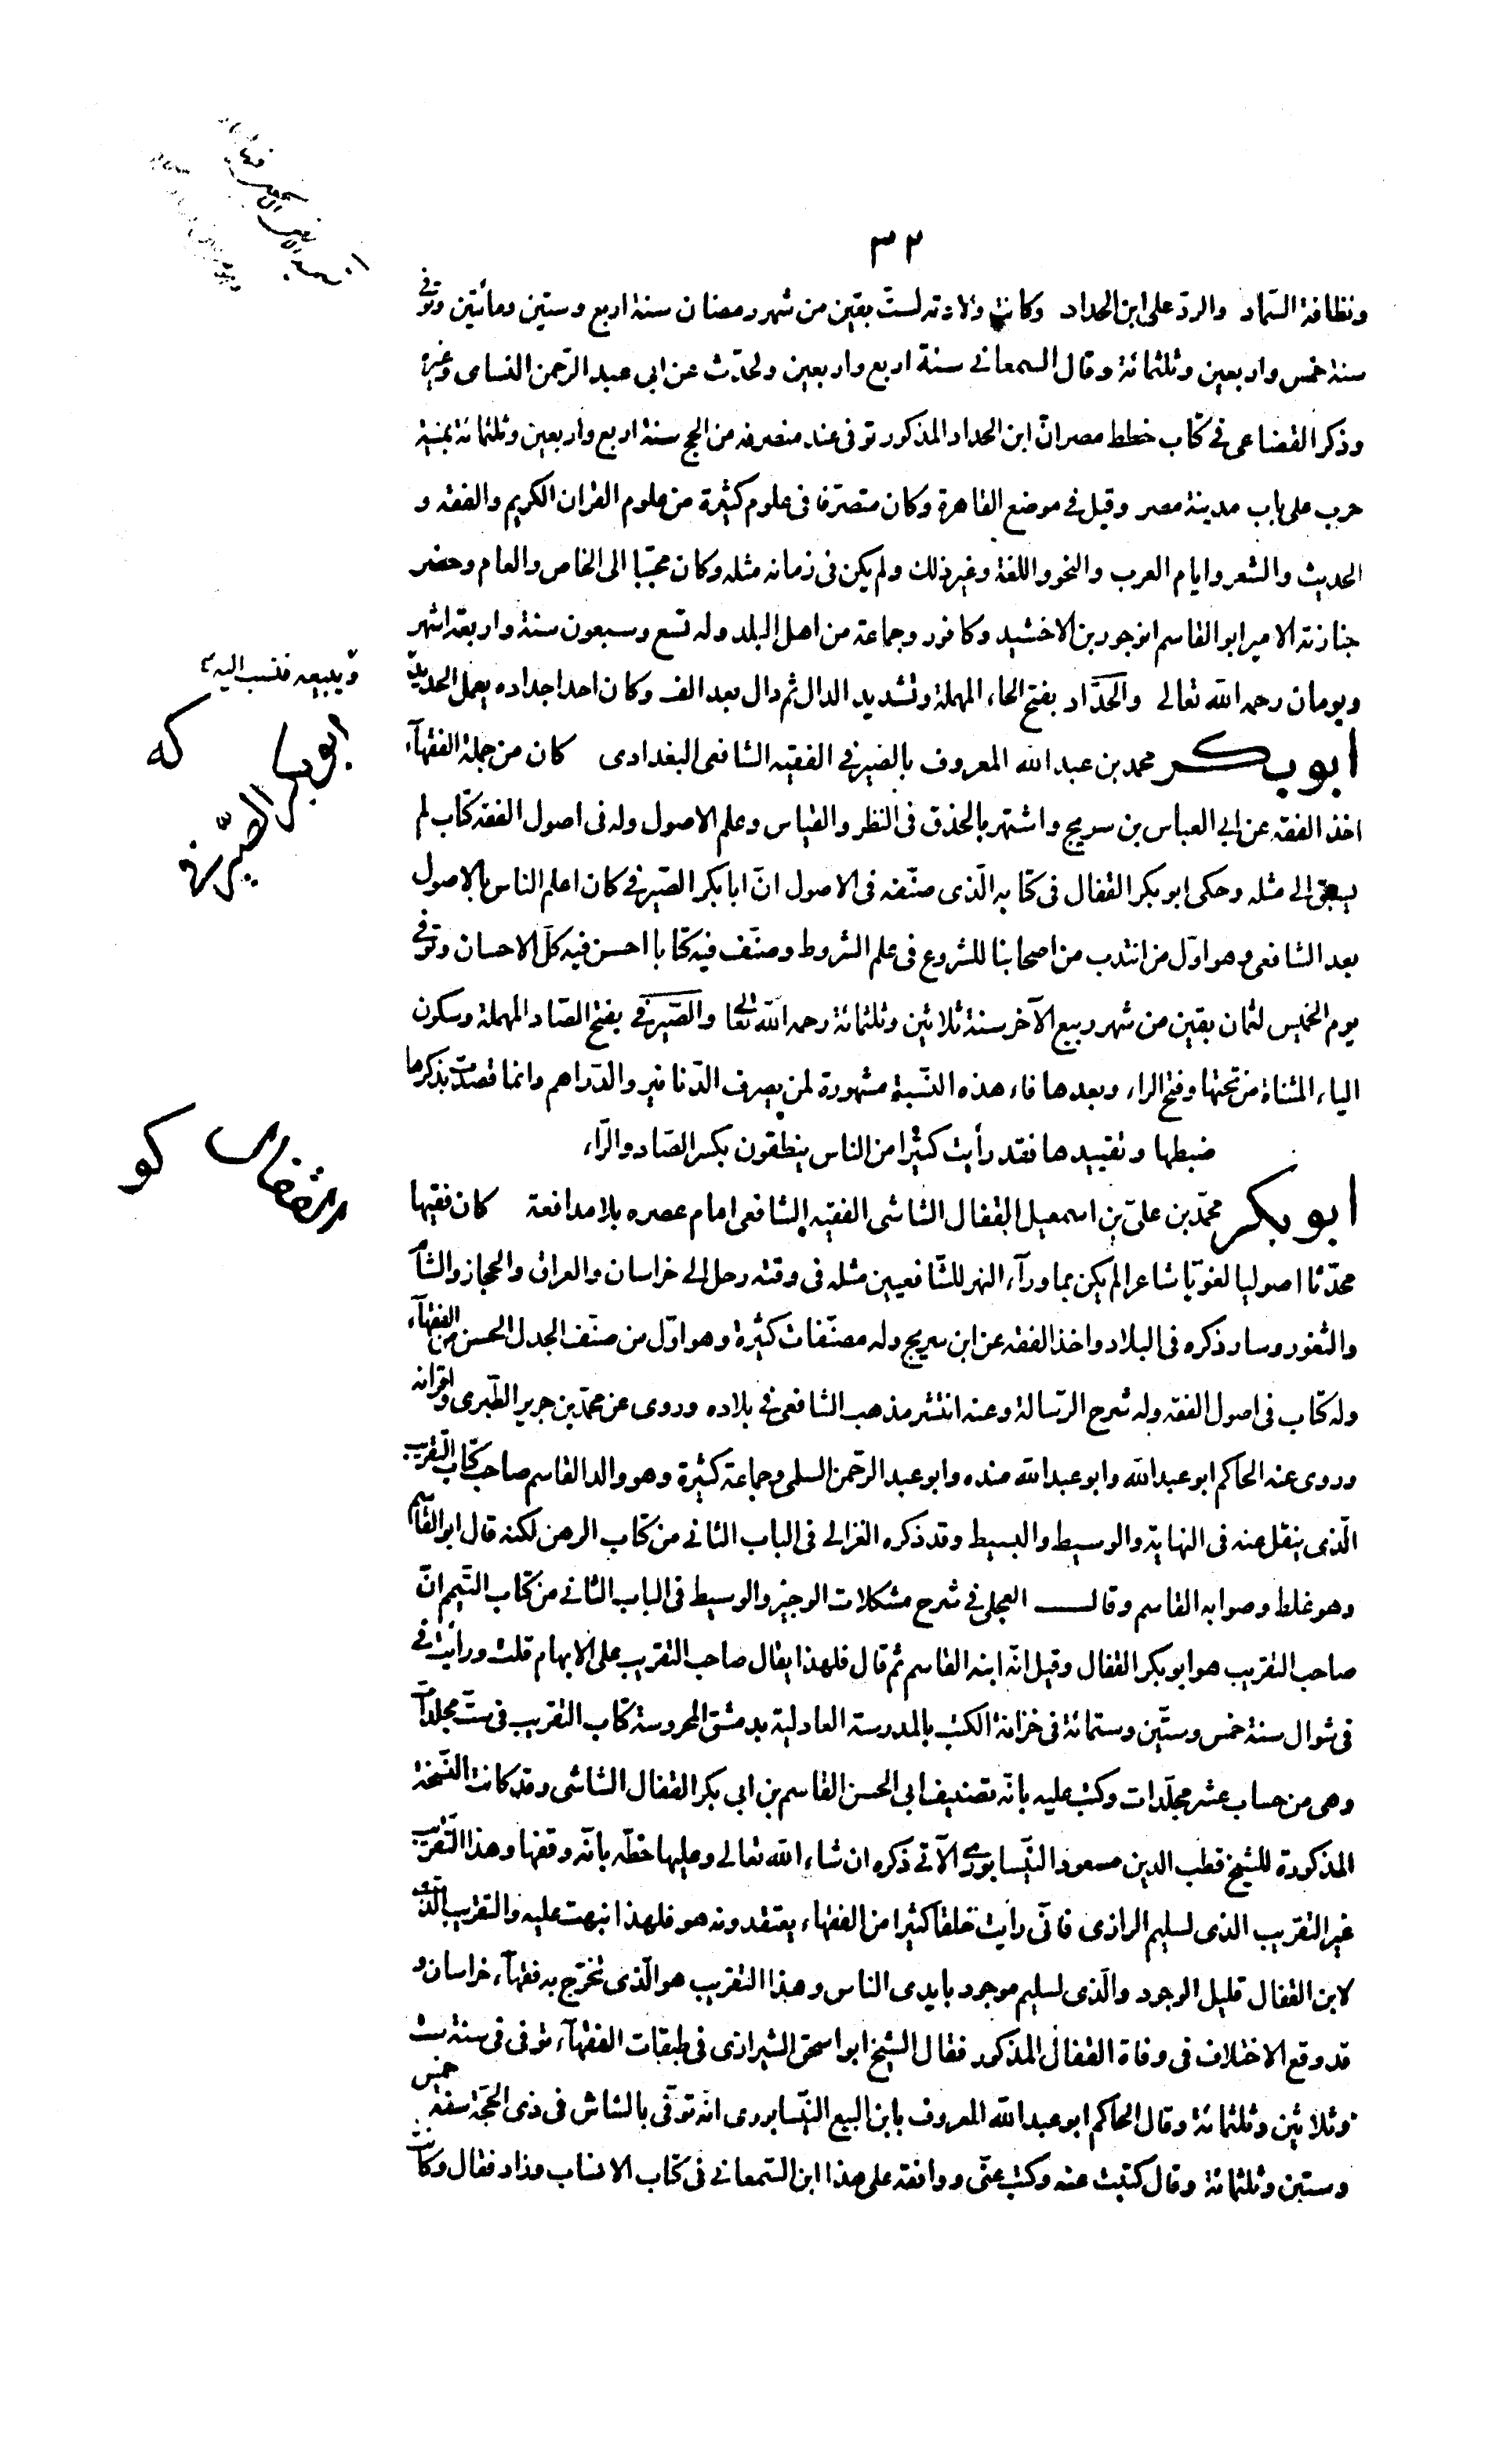 ٣٢
ونظافة السّماد والردّ على ابن الحداد وكانت ولادته لستّ بقين من شهر رمضان سنة اربع وستين ومائتين وتوفى
سنة خمس واربعين وثلثمائة وقال السمعانى سنة اربع واربعين ولحدّث عن ابى عبد الرّحمن النساى وغيره
وذكر القضاعى فى كتاب خطط مصر انّ ابن الحداد المذكور توفى عند منصرفه من الحج سنة اربع واربعين وثلثمائة بمنية
حرب على باب مدينة مصر وقيل فى موضع القاهرة وكان متصرّفا فى علوم كثيرة من علوم القران الكريم والفقه و
الحديث والشعر وايام العرب والنحو واللغة وغير ذلك ولم يكن فى زمانه مثله وكان محبّبا الى الخاص والعام وحضر
جنازته الامير ابو القاسم انوجور بن الاخشيد وكافور وجماعة من اهل البلد وله تسع وسبعون سنة واربعة اشهر
ويومان رحمه الله تعالى والحَدَّاد بفتح الحاء المهملة وتشديد الدال ثم دال بعد الف وكان احد اجداده يعمل الحديد
ويبيعه فنسب اليه
ابو بكر محمد بن عبد الله المعروف بالصيرفى الفقيه الشافعى البغدادى كان من جملة الفقهآء
ابو بكر الصّيرفى
كه
اخذ الفقه عن ابى العباس بن سريج واشتهر بالحذق فى النظر والقياس وعلم الاصول وله فى اصول الفقه كتاب لم
يسبق الى مثله وحكى ابو بكر القفال فى كتابه الّذى صنّفه فى الاصول انّ ابا بكر الصّيرفى كان اعلم الناس بالاصول
بعد الشافعى وهو اوّل من انتدب من اصحابنا للشروع فى علم الشروط وصنّف فيه كتابا احسن فيه كلّ الاحسان وتوفى
يوم الخميس لثمان بقين من شهر ربيع الآخر سنة ثلاثين وثلثمائة رحمه الله تعالى والصّيرفى بفتح الصّاد المهملة وسكون
الياء المثناة من تحتها وفتح الراء وبعدها فاء هذه النّسبة مشهورة لمن يصرف الدّنانير والدّراهم وانما قصدت بذكرها
ضبطها وتقييدها فقد رأيت كثيرا من الناس ينطقون بكسر الصّاد والرّاء
ابو بكر محمّد بن علىّ بن اسمعيل القفال الشاشى الفقيه الشافعى امام عصره بلا مدافعة كان فقيها
القفال
كو
محدّثا اصوليا لغويّا شاعرا لم يكن بماورآء النهر للشّافعيين مثله فى وقته رحل الى خراسان والعراق والحجاز والشام
والثغور وسار ذكره فى البلاد واخذ الفقه عن ابن سريج وله مصنّفات كثيرة وهو اوّل من صنّف الجدل الحسن من الفقهآء
وله كتاب فى اصول الفقه وله شرح الرّسالة وعنه انتشر مذهب الشافعى فى بلاده وروى عن محمّد بن جرير الطّبرى واقرانه
وروى عنه الحاكم ابو عبد الله وابو عبد الله منده وابو عبد الرّحمن السلمى وجماعة كثيرة وهو والد القاسم صاحب كتاب التّقريب
الّذى ينقل عنه فى النهاية والوسيط والبسيط وقد ذكره الغزالى فى الباب الثانى من كتاب الرهن لكنه قال ابو القاسم
وهو غلط وصوابه القاسم وقال العجلى فى شرح مشكلات الوجيز والوسيط فى الباب الثانى من كتاب التّيمم انّ
صاحب التقريب هو ابو بكر القفال وقيل انّه ابنه القاسم ثم قال فلهذا يقال صاحب التقريب على الابهام قلت ورأيت فى
فى شوال سنة خمس وستّين وستمائة فى خزانة الكتب بالمدرسة العادلية بدمشق المحروسة كتاب التقريب فى ستّ مجلدات
وهى من حساب عشر مجلّدات وكتب عليه بانّه تصنيف ابى الحسن القاسم بن ابى بكر القفال الشاشى وقد كانت النّسخة
المذكورة للشيخ قطب الدين مسعود النّيسابورى الآتى ذكره ان شاء الله تعالى وعليها خطّه بانّه وقفها وهذا التّقريب
غير التقريب الذى لسليم الرازى فانّى رايت خلقا كثيرا من الفقهاء يعتقدونه هو فلهذا نبهت عليه والتقريب الّذى
لابن القفال قليل الوجود والّذى لسليم موجود بايدى الناس وهذا التقريب هو الّذى تخرّج به فقهآء خراسان و
قد وقع الاختلاف فى وفاة القفال المذكور فقال الشيخ ابو اسحق الشيرازى فى طبقات الفقهآء توفى فى سنة ست
وثلاثين وثلثمائة وقال الحاكم ابو عبد الله المعروف بابن البيع النّيسابورى انّه توفّى بالشاش فى ذى الحجّة سنة خمس
وستين وثلثمائة وقال كتبت عنه وكتب عنّى ووافقه على هذا ابن السّمعانى فى كتاب الانساب وزاد فقال وكانت